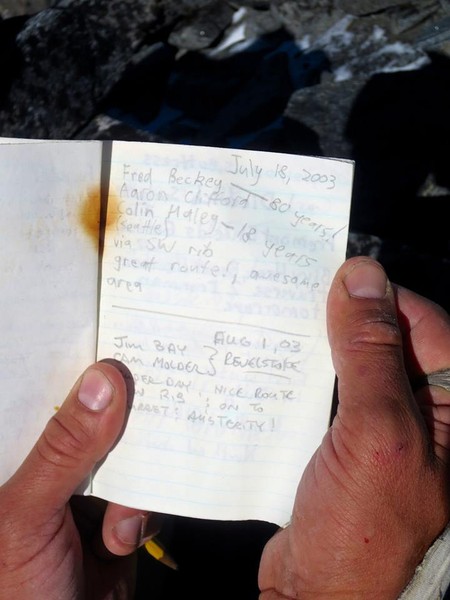 July 18, 2003
Fred Beckey - 80 years!
Aaron Clifford
Colin Haley - 18 years
Seattle
via SW rib
great route!, awesome
area
AUG 1, 03
JIM BAY
CAM MOLDER } REVELSTOKE
DAY, NICE ROUTE
ON TO
AUSTERITY!